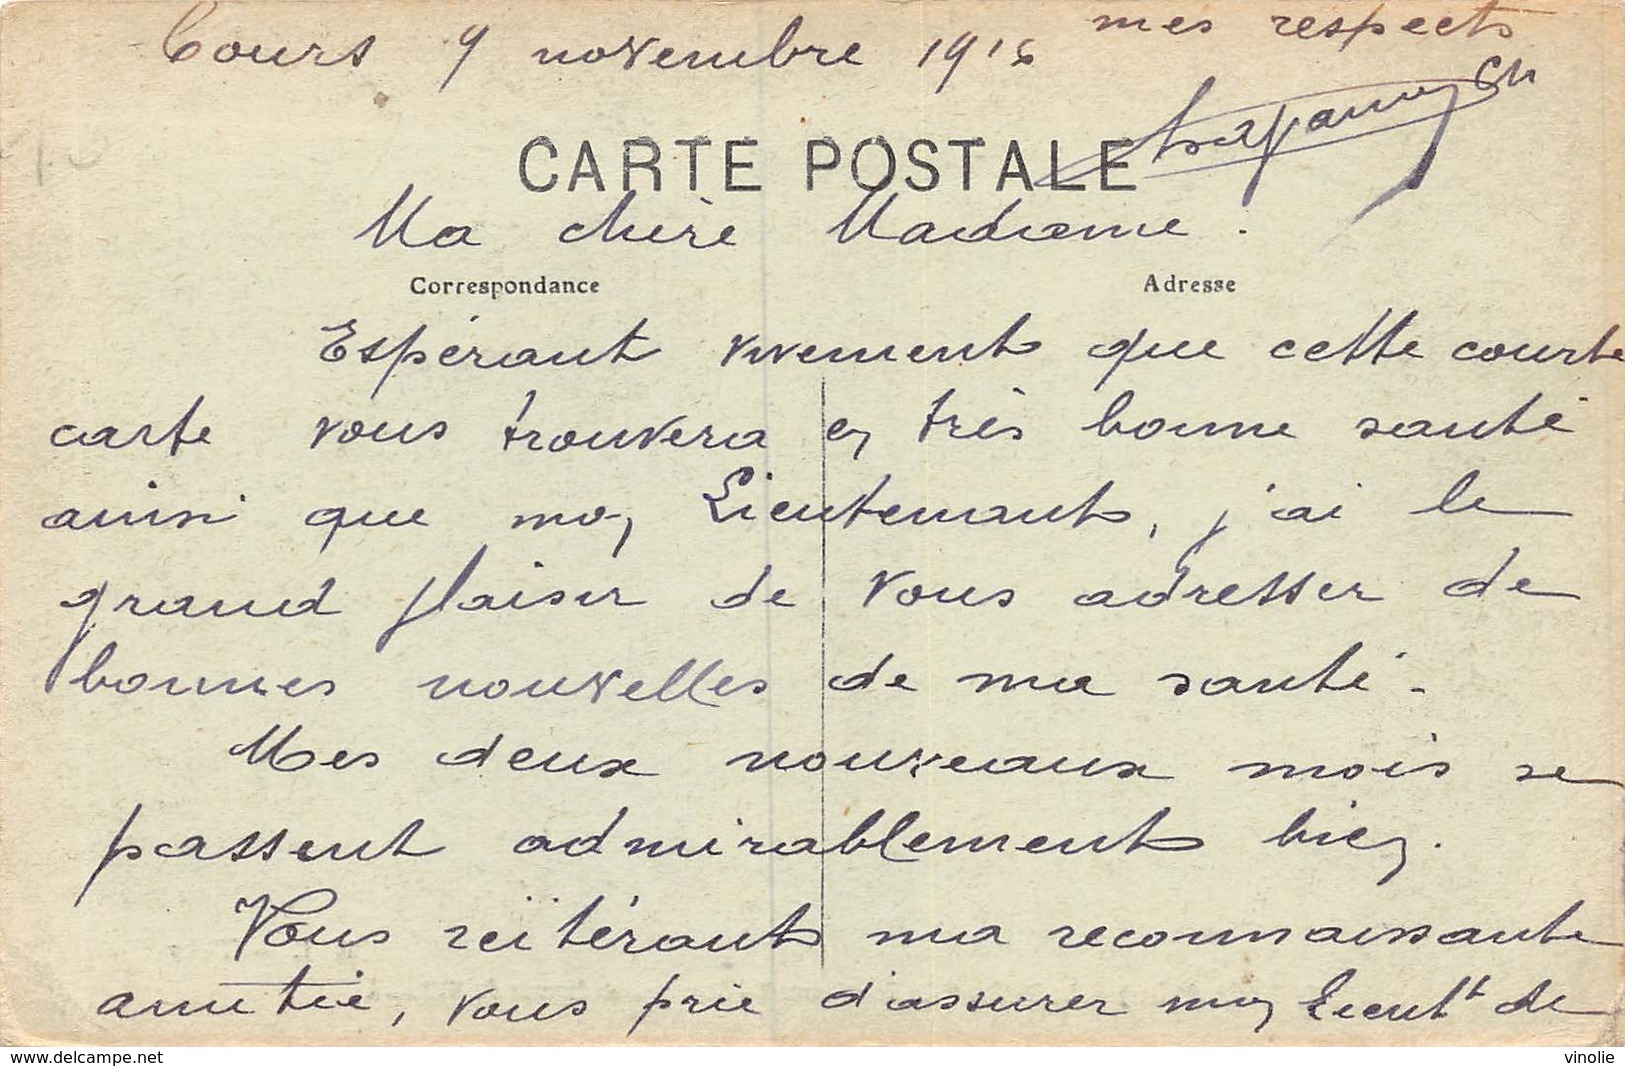 Cours 9 novembre 1916 mes respects
CARTE POSTALE
Ma chère Madame.
Correspondance Adresse
Espérant vivement que cette courte
carte vous trouvera en très bonne santé
ainsi que mon Lieutenant, j'ai le
grand plaisir de vous adresser de
bonnes nouvelles de ma santé.
Mes deux nouveaux mois se
passent admirablement bien.
Vous réïtérant ma reconnaissante
amitié, vous prie d'assurer mon Lieutt de
www.delcampe.net vinolie